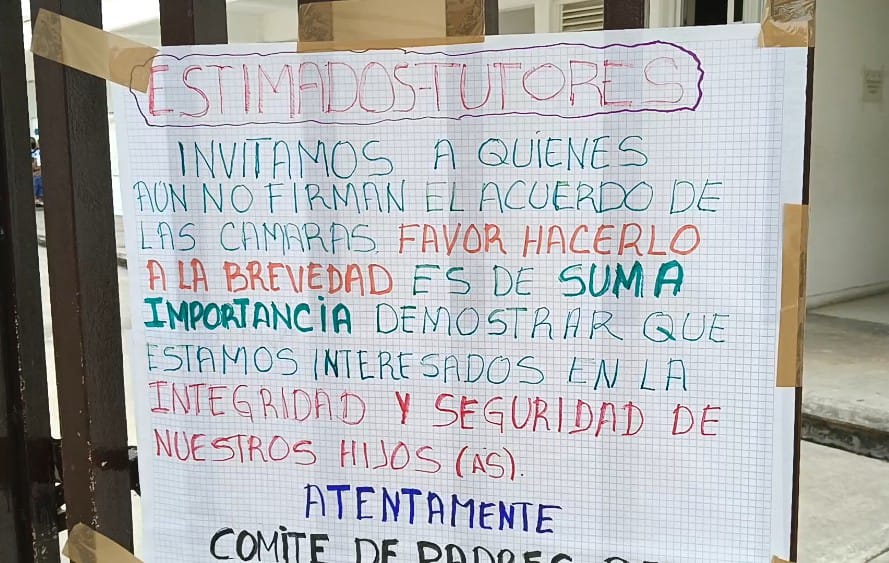 ESTIMADOS-TUTORES
INVITAMOS A QUIENES
AÚN NO FIRMAN EL ACUERDO DE
LAS CAMARAS. FAVOR HACERLO
A LA BREVEDAD ES DE SUMA
IMPORTANCIA DEMOSTRAR QUE
ESTAMOS INTERESADOS EN LA
INTEGRIDAD Y SEGURIDAD DE
NUESTROS HIJOS (AS).
ATENTAMENTE
COMITE DE PADRES DE